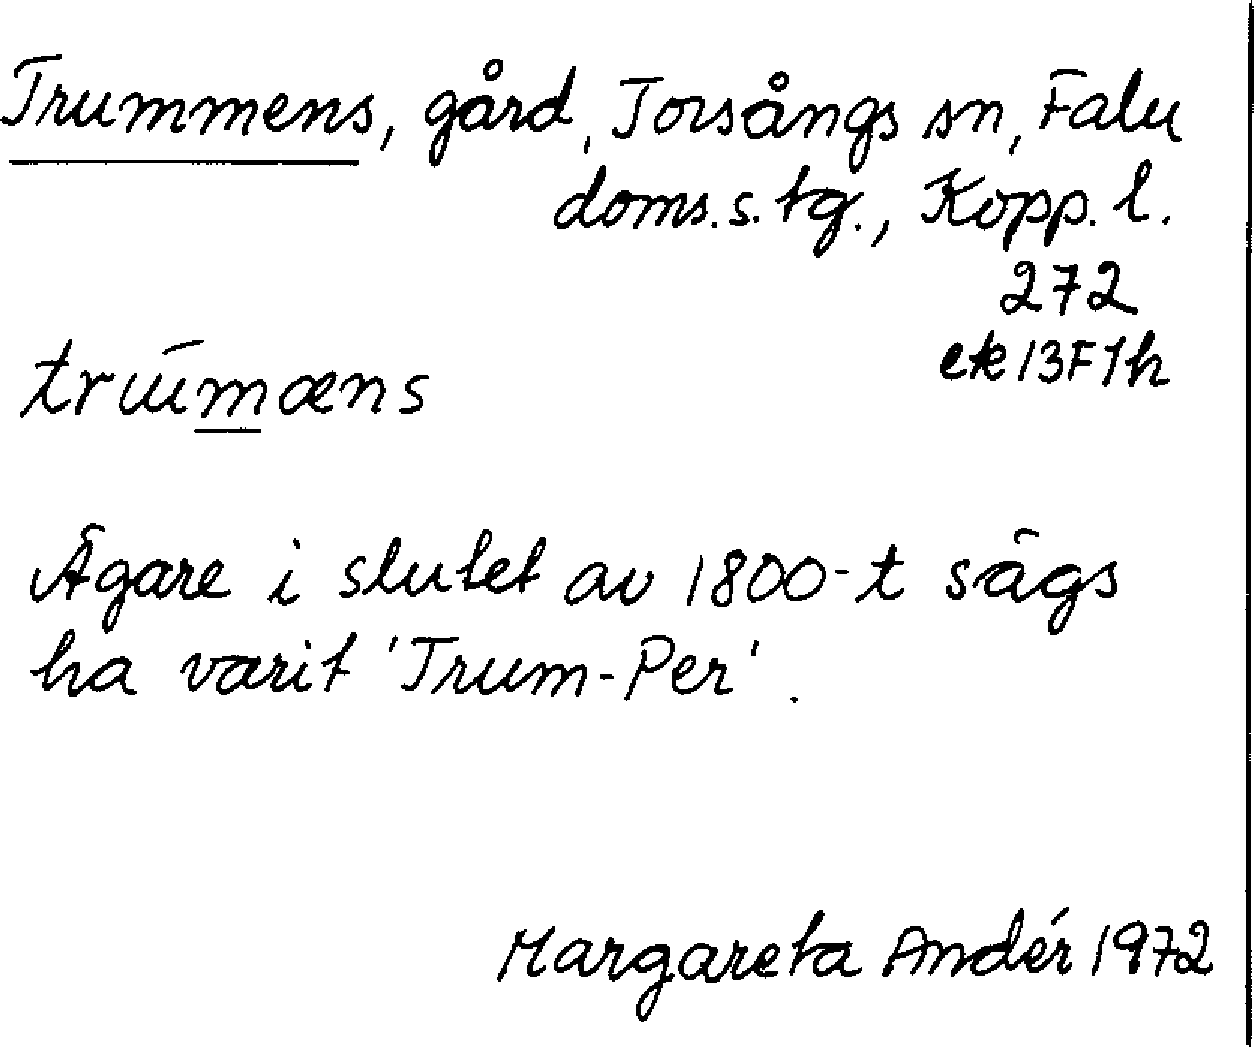 Trummens, gård, Torsångs sn, Falu
doms.s.tg., Kopp. l.
272
ek 13F1h
Ägare i slutet av 1800-t sägs
ha varit 'Trum-Per'.
Margareta Andér 1972